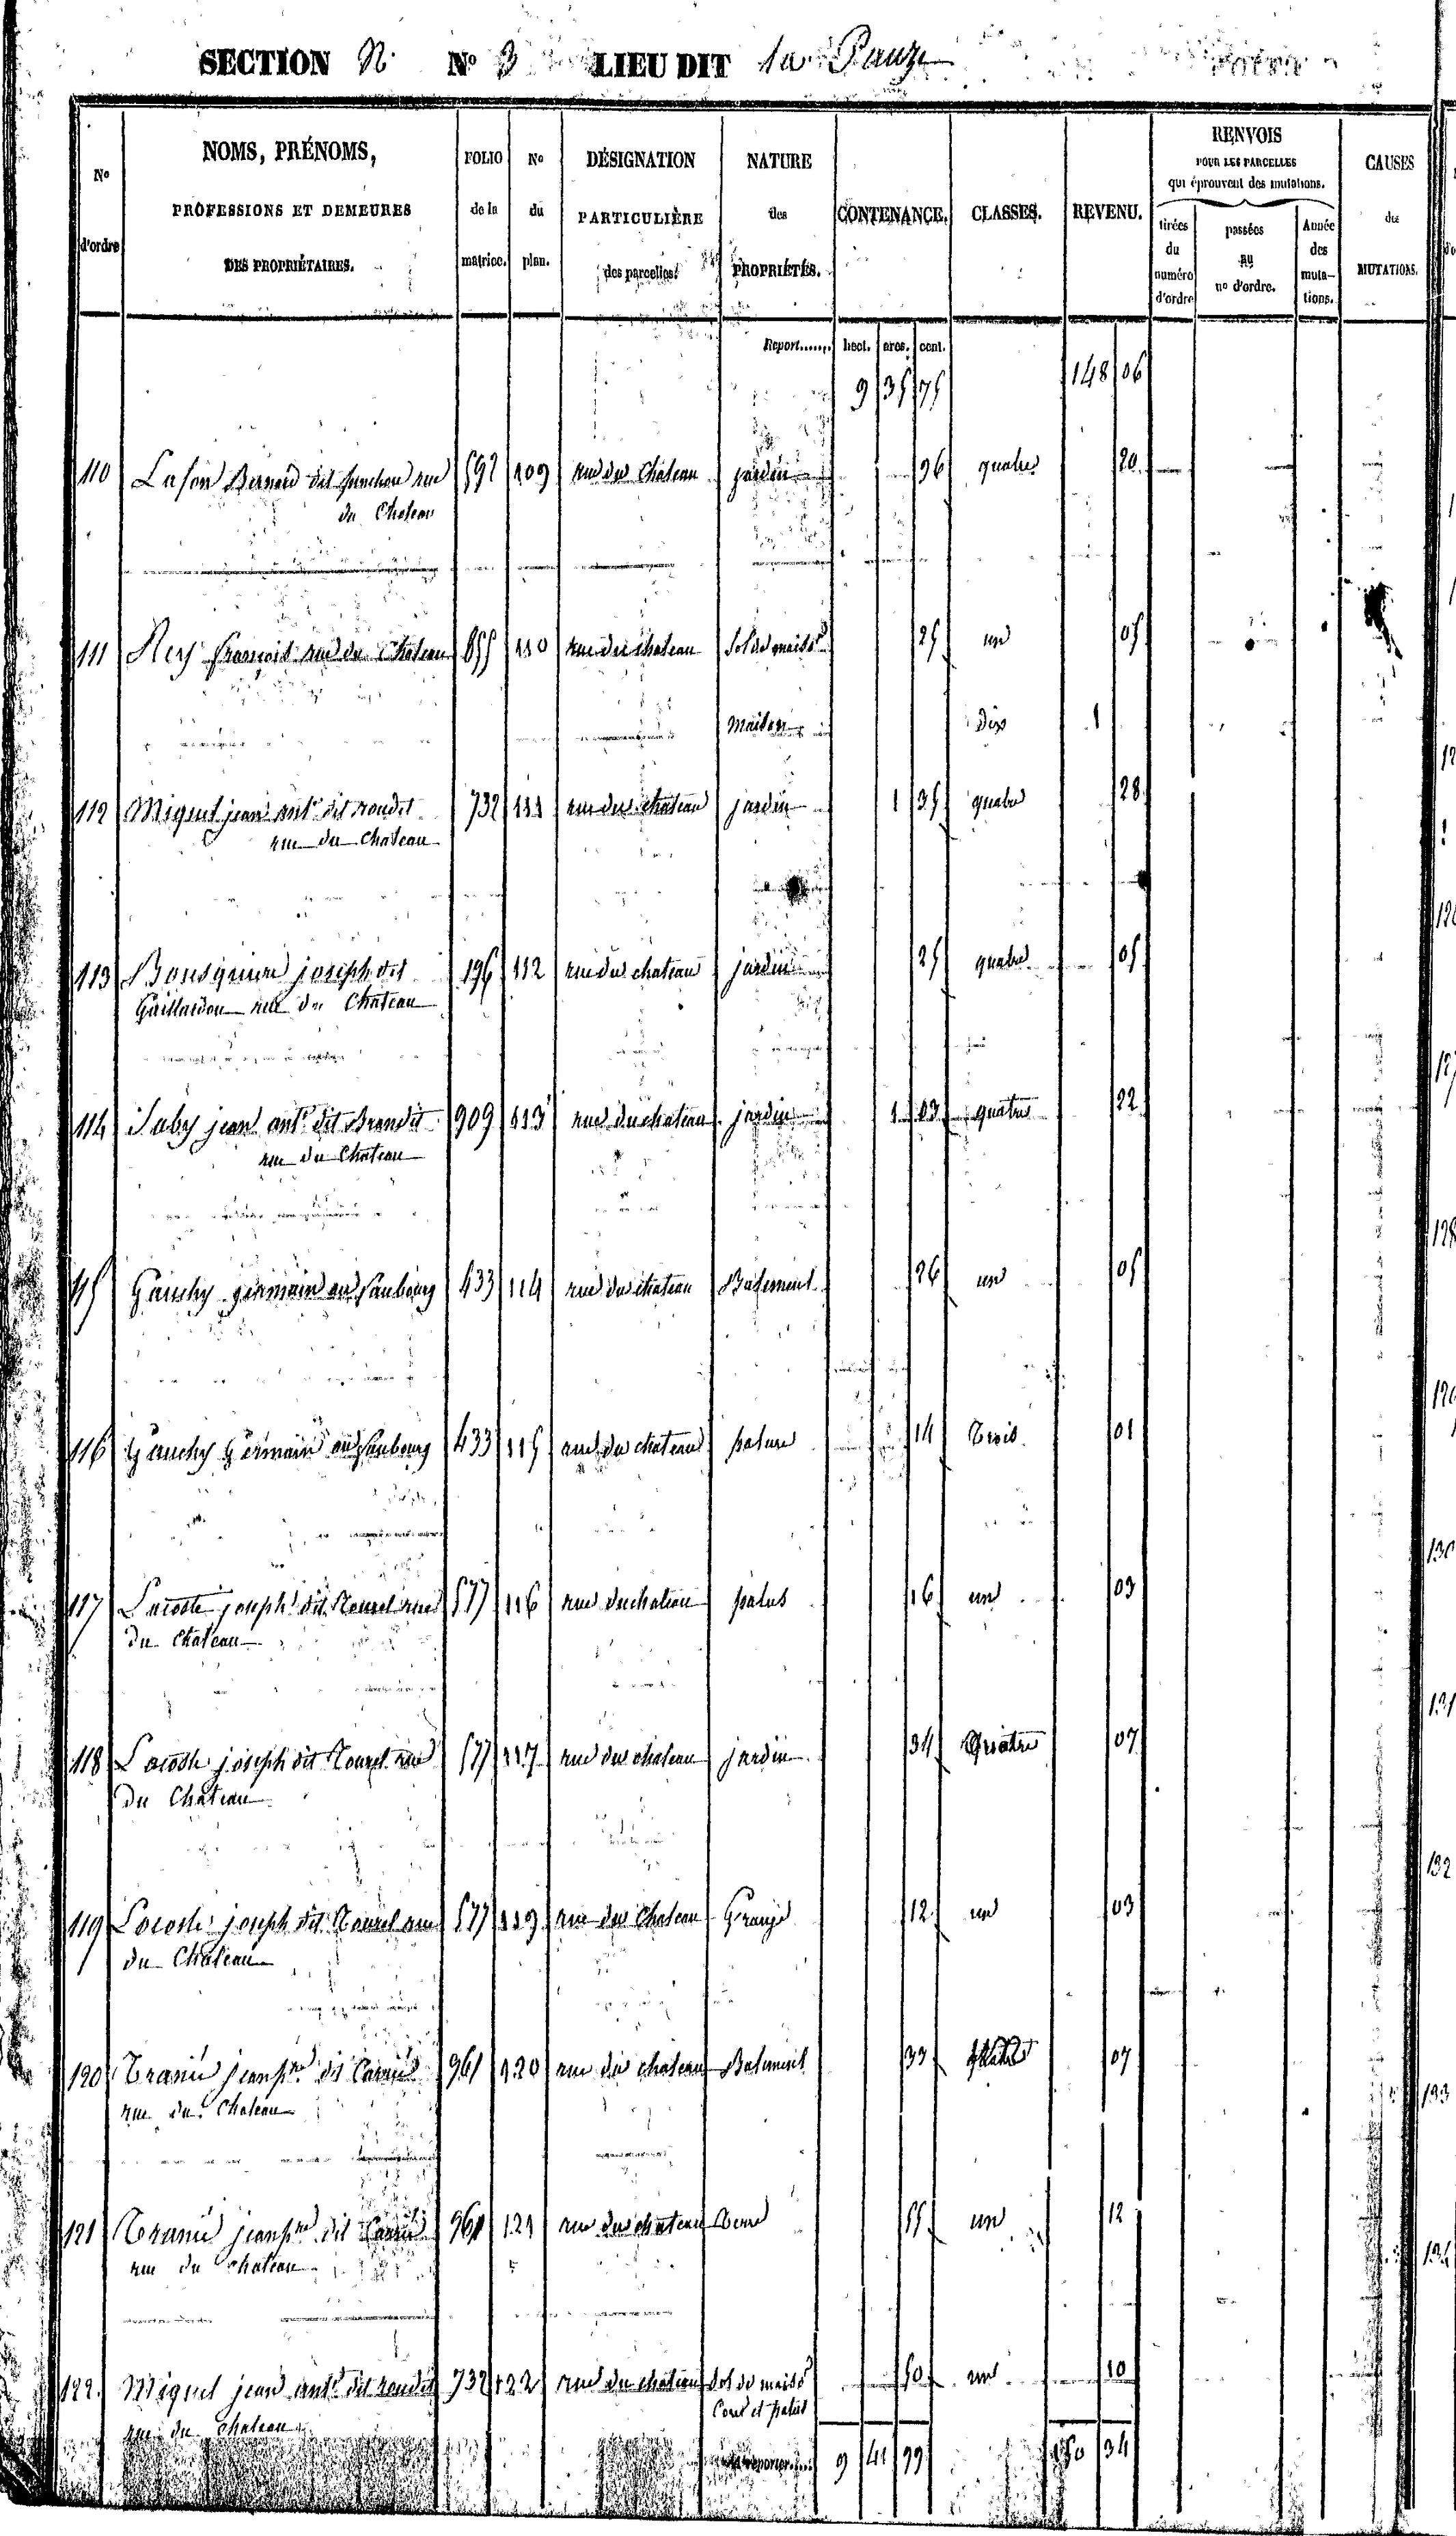 SECTION N. No 3 LIEU DIT la Pauze
No d'ordre
NOMS, PRÉNOMS, PROFESSIONS ET DEMEURES DES PROPRIÉTAIRES.
FOLIO de la matrice.
No du plan.
DÉSIGNATION PARTICULIÈRE des parcelles.
NATURE des PROPRIÉTÉS.
CONTENANCE.
CLASSES.
REVENU.
RENVOIS POUR LES PARCELLES qui éprouvent des mutations.
tirées du numéro d'ordre
passées au no d'ordre.
Année des mutations.
CAUSES des MUTATIONS.
Report....... hect. ares. cent.
9 35 75 148 06
110 Lafon Bernard dit rue 592 109 rue du Chateau jardin 96 quatre 20
du Chateau
111 Rey francois rue du Chateau 855 110 rue du chateau Sol de maison 25 un 05
maison dix 1
112 Miquel jean ant.e dit roudet 732 111 rue du chateau jardin 1 35 quatre 28
rue du Chateau
113 Bousquieu joseph dit 196 112 rue du chateau jardin 25 quatre 05
Gaillardou rue du Chateau
114 Saby jean ant.e dit 909 113 rue du chateau jardin 1 03 quatre 22
rue du Chateau
115 Gauchy germain au faubourg 433 114 rue du chateau Batiment 26 un 05
116 Gauchy Germain au faubourg 433 115 rue du chateau pature 14 Trois 01
117 Lacoste joseph dit Rouzel rue 577 116 rue du chateau patus 16 un 03
du Chateau
118 Lacoste joseph dit Rouzel rue 577 117 rue du chateau jardin 34 Quatre 07
du Chateau
119 Lacoste joseph dit Rouzel rue 577 119 rue du Chateau Grange 12 un 03
du Chateau
120 Tranié jean p.re dit Carrié 961 120 rue du chateau Batiment 33 07
rue du Chateau
121 Tranié jean p.re dit Carrié 961 121 rue du chateau 55 un 12
rue du Chateau
122. Miquel jean ant.e dit roudet 732 122 rue du chateau Sol de maison 50 un 10
rue du Chateau Cour et patus
A reporter...... 9 41 99 150 34